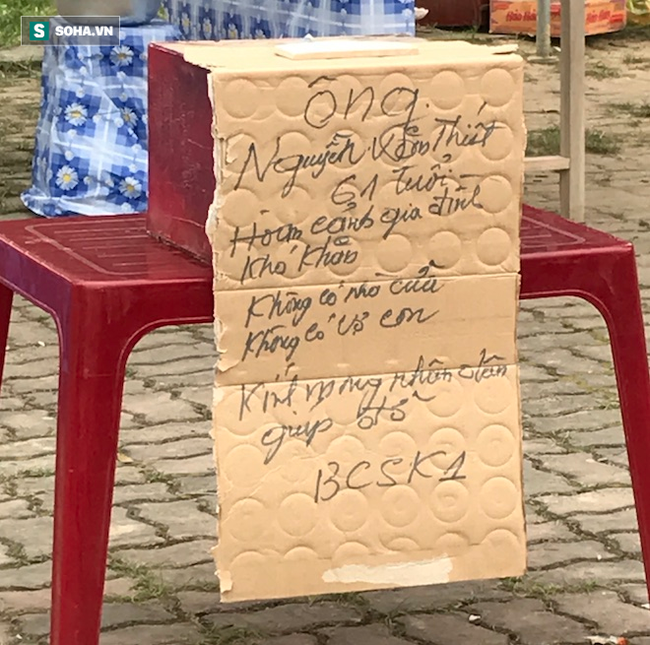 SOHA.VN
Ông.
Nguyễn Văn Thiết
61 tuổi
Hoàn cảnh gia đình
Khó khăn
Không có nhà cửa
Không có vợ con
Kính mong nhân dân
giúp đỡ
BCSK1
Hảo Hảo